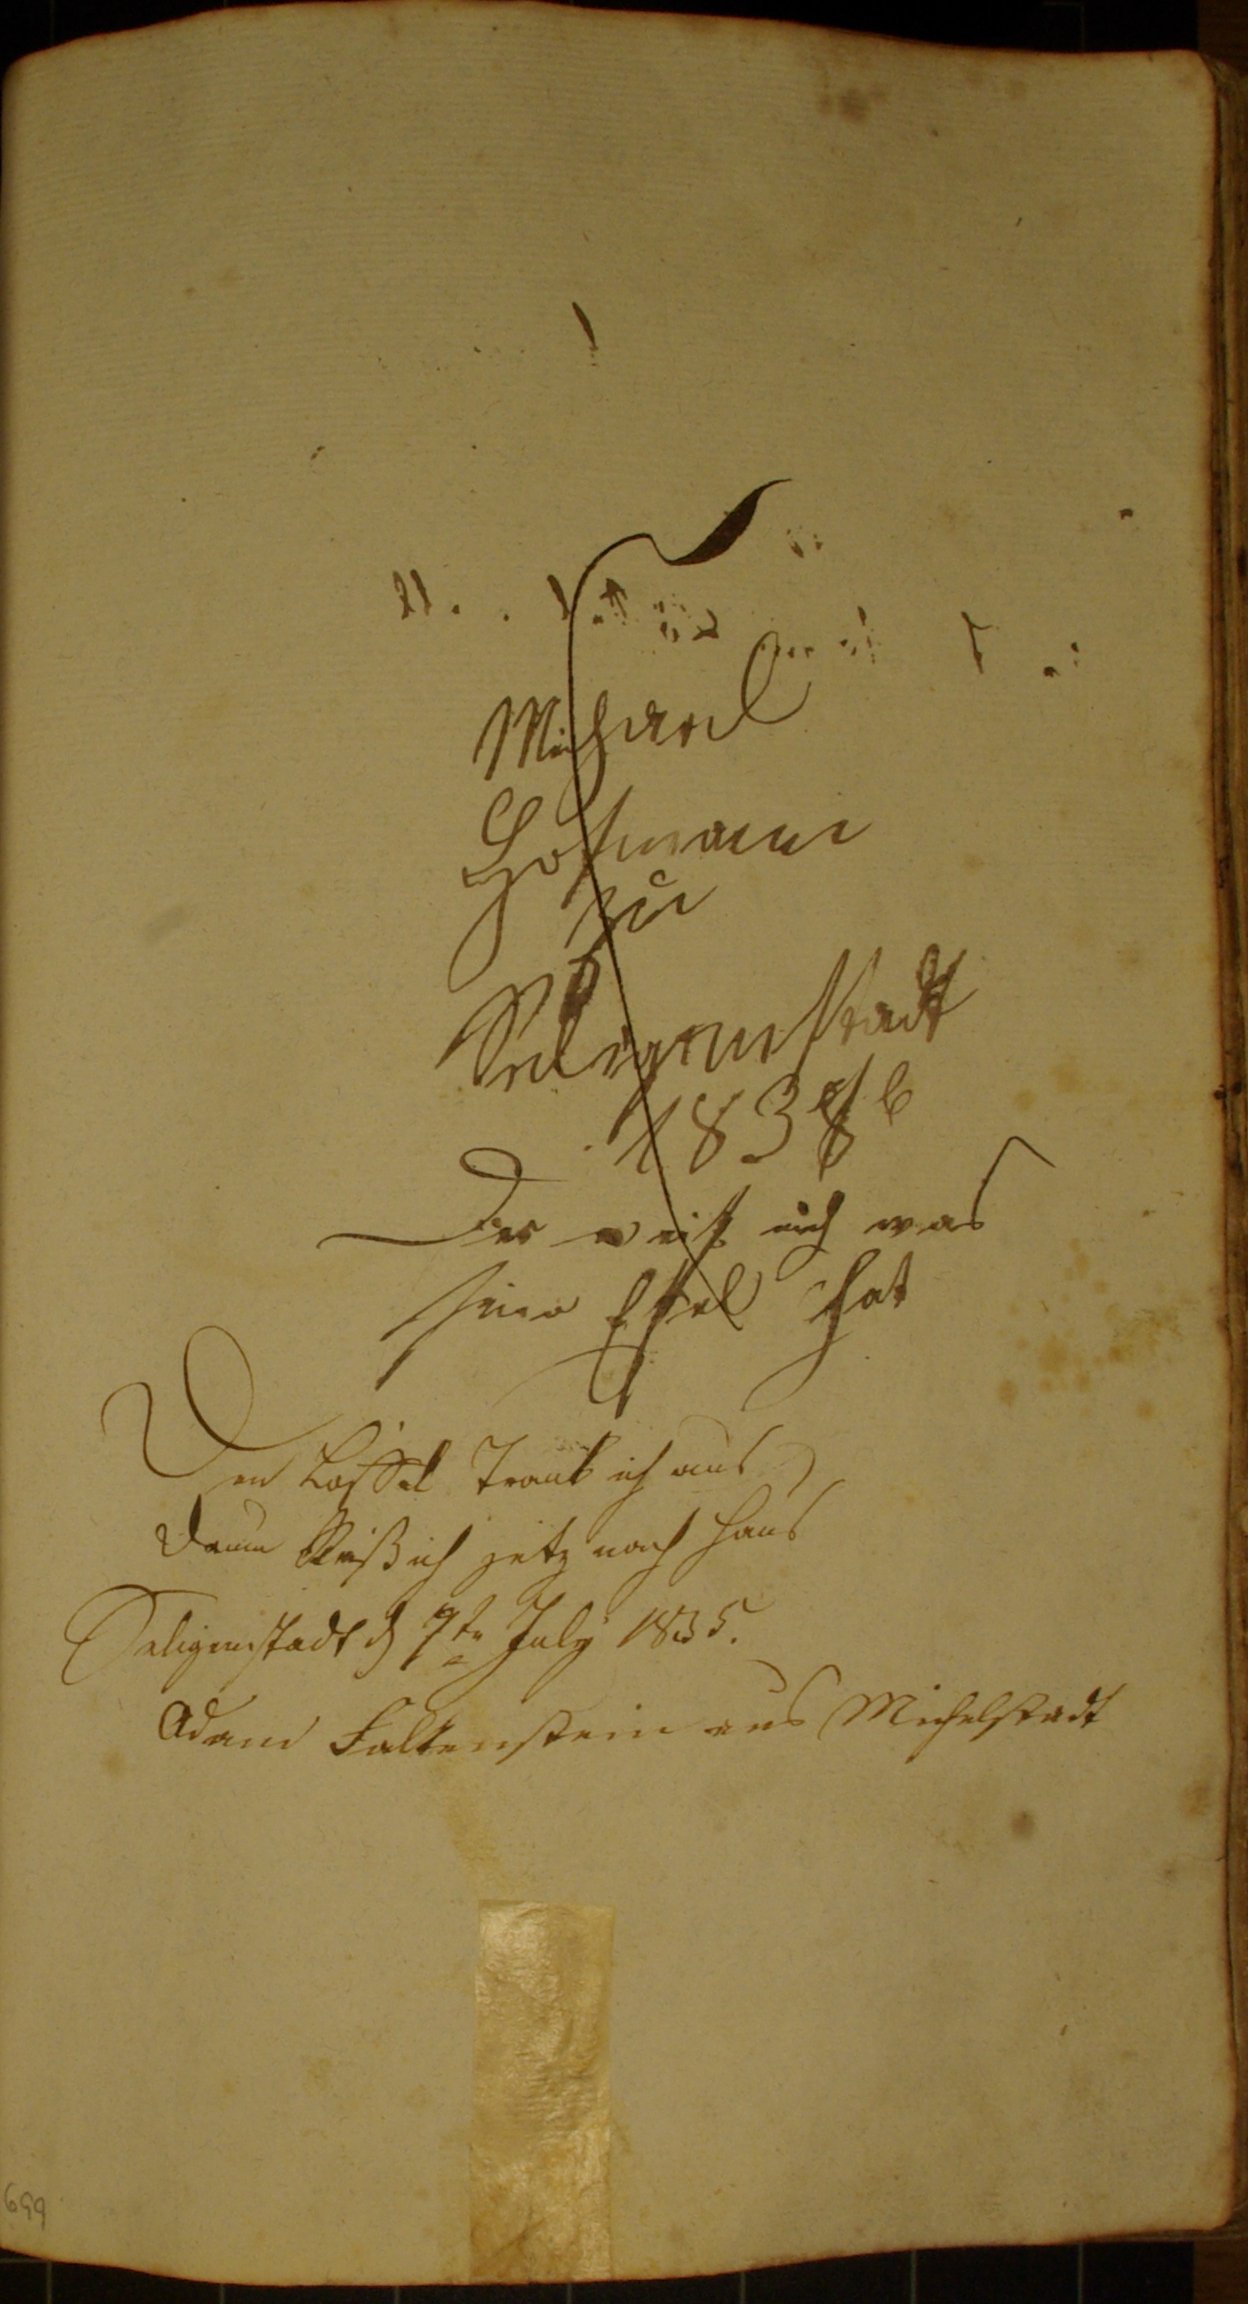 Michael
Hofmann
zu
Seligenstadt
1836
Der weiß nich was
hat
Den Löffel Trank ich aus
Dann Reiß ich jetz nach Haus
Seligenstadt d 7te July 1835.
Adam Falkenstein aus Michelstadt
699